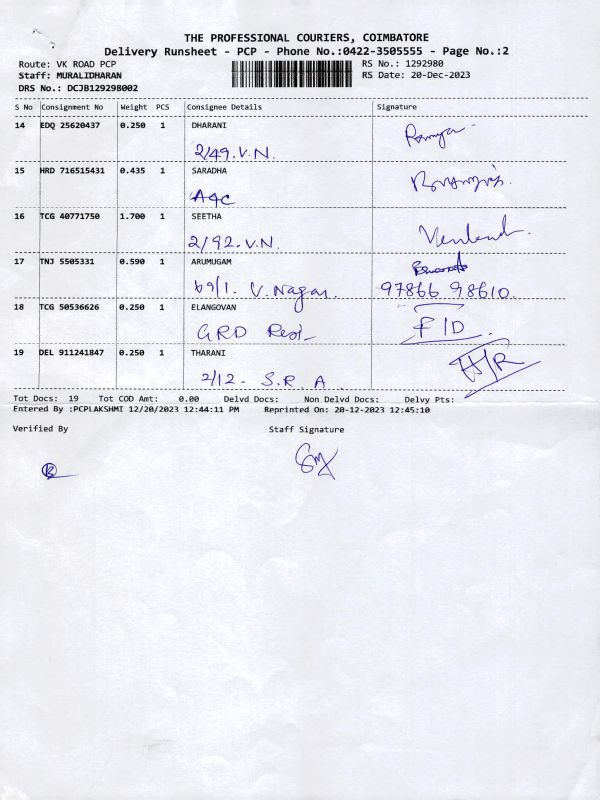 THE PROFESSIONAL COURIERS, COIMBATORE
Delivery Runsheet - PCP - Phone No.:0422-3505555 - Page No.:2
Route: VK ROAD PCP RS No.: 1292980
Staff: MURALIDHARAN RS Date: 20-Dec-2023
DRS No.: DCJB129298002
S No Consignment No Weight PCS Consignee Details Signature
14 EDQ 25620437 0.250 1 DHARANI
2/49. V.N.
15 HRD 716515431 0.435 1 SARADHA
A4C
16 TCG 40771750 1.700 1 SEETHA
2/92. V.N.
17 TNJ 5505331 0.590 1 ARUMUGAM
69/1. V. Nagar. 97866 98610.
18 TCG 50536626 0.250 1 ELANGOVAN
GRD F1D.
19 DEL 911241847 0.250 1 THARANI
2/12. S.R.A H/R
Tot Docs: 19 Tot COD Amt: 0.00 Delvd Docs: Non Delvd Docs: Delvy Pts:
Entered By :PCPLAKSHMI 12/20/2023 12:44:11 PM Reprinted On: 20-12-2023 12:45:10
Verified By Staff Signature